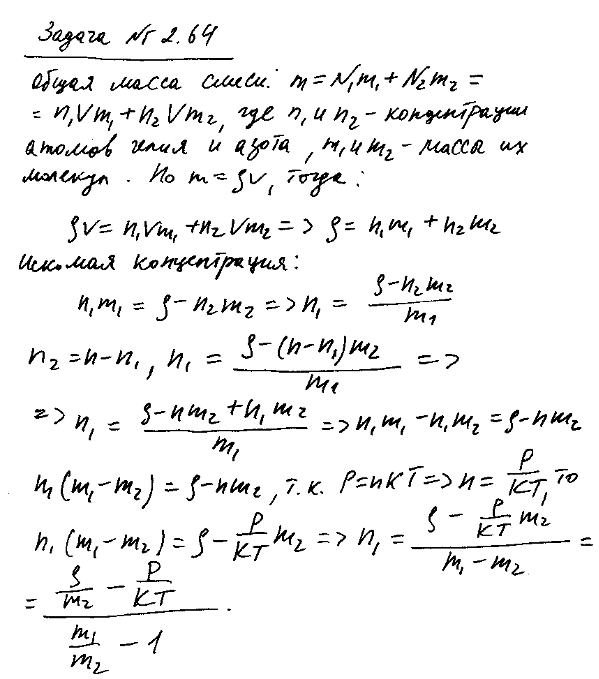 Задача № 2.64
Общая масса смеси: m = N₁m₁ + N₂m₂ =
= n₁Vm₁ + n₂Vm₂, где n₁ и n₂ - концентрации
атомов гелия и азота, m₁ и m₂ - масса их
молекул. Но m = ρV, тогда:
ρV = n₁Vm₁ + n₂Vm₂ => ρ = n₁m₁ + n₂m₂
Искомая концентрация:
n₁m₁ = ρ - n₂m₂ => n₁ = (ρ - n₂m₂)/m₁
n₂ = n - n₁, n₁ = (ρ - (n - n₁)m₂)/m₁ =>
=> n₁ = (ρ - nm₂ + n₁m₂)/m₁ => n₁m₁ - n₁m₂ = ρ - nm₂
n₁(m₁ - m₂) = ρ - nm₂, т.к. P = nKT => n = P/KT, то
n₁(m₁ - m₂) = ρ - P/KT m₂ => n₁ = (ρ - P/KT m₂)/(m₁ - m₂) =
= (ρ/m₂ - P/KT)/(m₁/m₂ - 1).